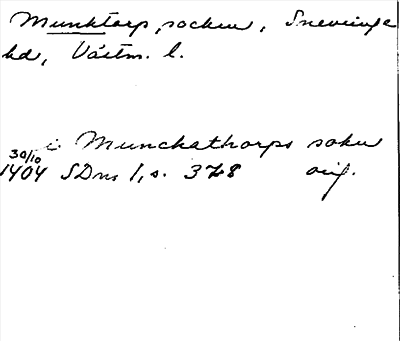 Munktorp, socken, Snevringe
hd, Västm. l.
i Munchathorps sokn
30/10
1404 SDns 1, s. 378 orig.